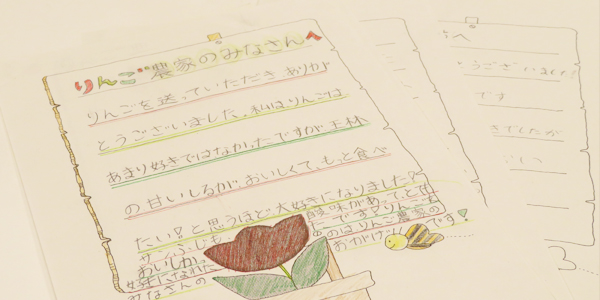 りんご農家のみなさんへ
りんごを送っていただき ありが
とうございました。私はりんごは
あまり好きではなかったですが 王林
の甘いしるが、おいしくて、もっと食べ
たい!と思うほど大好きになりました!
サンふじも 酸味があって
おいしかったです!りんごを
好きになれたのはりんご農家の
みなさんの おかげです!
へ
うございました
です
きでしたが
3